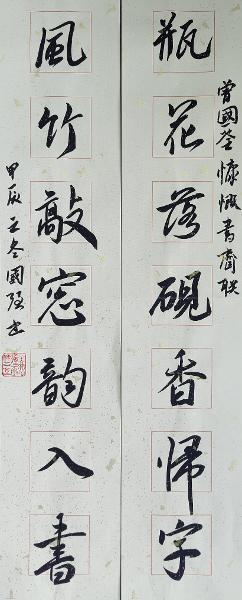 曾國荃慷慨書齋聯
瓶花落硯香歸字
風竹敲窓韵入書
甲辰之冬國强書